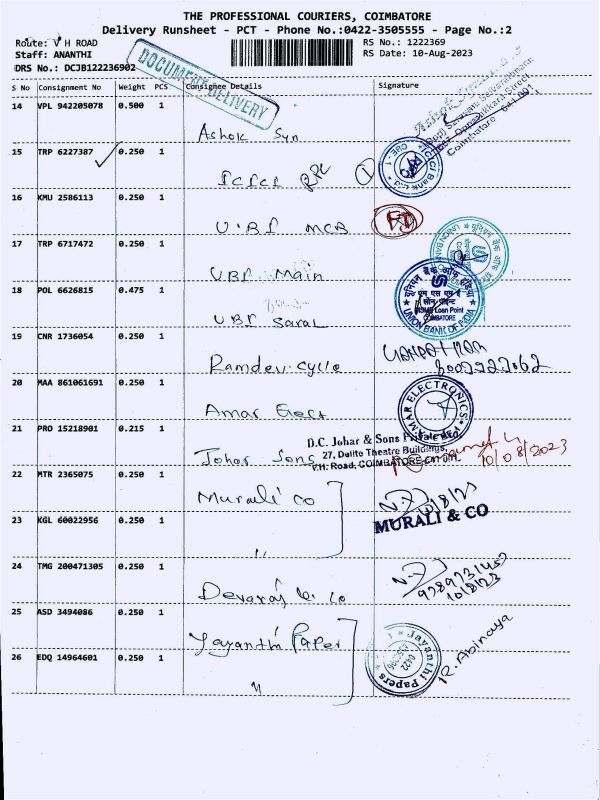 THE PROFESSIONAL COURIERS, COIMBATORE
Delivery Runsheet - PCT - Phone No.:0422-3505555 - Page No.:2
Route: V H ROAD
Staff: ANANTHI
DRS No.: DCJB122236902
RS No.: 1222369
RS Date: 10-Aug-2023
DOCUMENT DELIVERY
S No Consignment No Weight PCS Consignee Details Signature
14 VPL 942205078 0.500 1
Ashok Syn
Coimbatore - 641 001
15 TRP 6227387 0.250 1
ICICI
ICICI Bank Ltd
CBE - 1
16 KMU 2586113 0.250 1
U.B.I MCB
17 TRP 6717472 0.250 1
UBI Main
18 POL 6626815 0.475 1
UBI Saral
यूनियन बैंक ऑफ इंडिया
UNION BANK OF INDIA
COIMBATORE
19 CNR 1736054 0.250 1
Ramdev cycle
20 MAA 861061691 0.250 1
Amar Elect
AMAR ELECTRONICS
21 PRO 15218901 0.215 1
Johar Sons
D.C. Johar & Sons Private Ltd
27, Delite Theatre Buildings,
V.H. Road, COIMBATORE-641 001.
10/08/2023
22 MTR 2365075 0.250 1
Murali Co
MURALI & CO
23 KGL 60022956 0.250 1
"
24 TMG 200471305 0.250 1
Devaraj & Co
10/8/23
25 ASD 3494086 0.250 1
Jayanthi Paper
Jayanthi Papers
R. Abinaya
26 EDQ 14964601 0.250 1
"